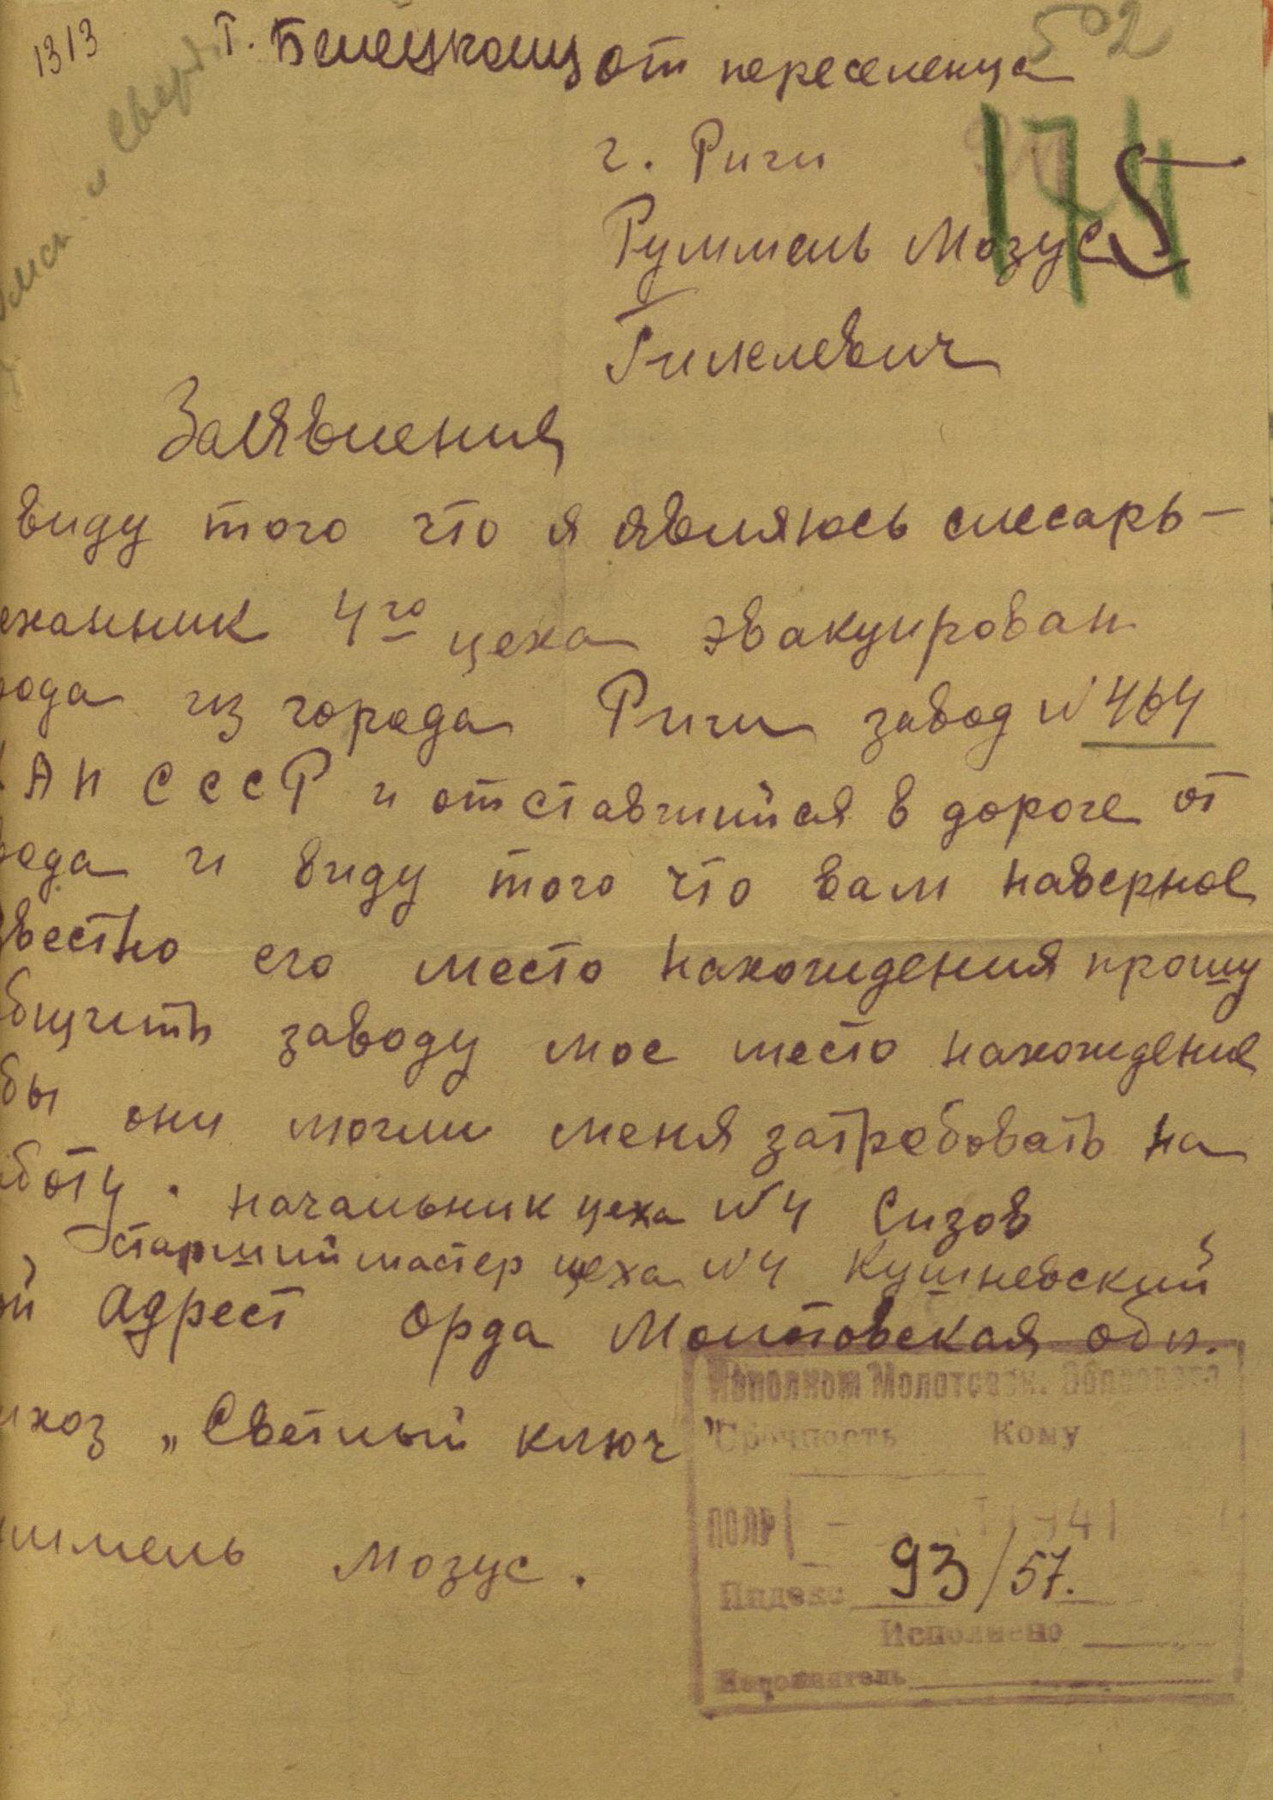 1313
Т. Белецкому от переселенца
502
г. Риги
175
Руммель Мозус
Гиклевич
Заявления
виду того что я являюсь слесарь-
еханник 4го цеха эвакуирован
ода из города Риги завод №464
АН СССР и отставшийся в дороге от
вода и виду того что вам наверное
звестно его место нахождения прошу
бщить заводу мое место нахождение
бы они могли меня затребовать на
боту. начальник цеха №4 Сизов
Старший мастер цеха №4 Кушневский
ой Адрест Орда Молотовская обл.
лхоз „Светлый ключ"
ммель Мозус.
Исполком Молотовск. Облсовета
Срочность Кому
ПОЛУ 1941
Индекс 93/57.
Исполнено
Исполнитель